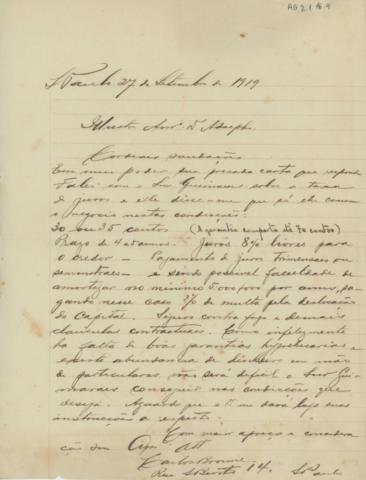 S Paulo 27 de Setembro de 1919
Illustre Amº Dr Adolpho
Cordeaes saudações
Em meu poder sua presada carta que respondo
Fallei com o Snr Guimaraes sobre a taxa
de juros e este disse-me que só elle commum
o negocio nestas condicções:
30 ou 35 contos (A garantia comporta até 70 contos)
Prazo de 4 annos. Juros 8% livres para
o credor — Pagamento de juros trimensaes ou
semestraes — e sendo possivel faculdade de
amortizar no minimo 5:000$000 por anno, pa-
gando nesse caso 2% de multa pela destruição
do Capital. Seguro contra fogo e demais
clausulas contractuaes. Como infelizmente
ha falta de boas garantias hypothecarias e
existe abundancia de dinheiro em mãos
de particulares não será deficil o Snr Gui-
maraes conseguir nas condicções que
deseja. Aguardo que o Dr me dará logo suas
instrucções a respeito.
Com maior apreço e considera
ção sou Amº Att
Carlos
Rua S Bento 14. S Paulo
AG21